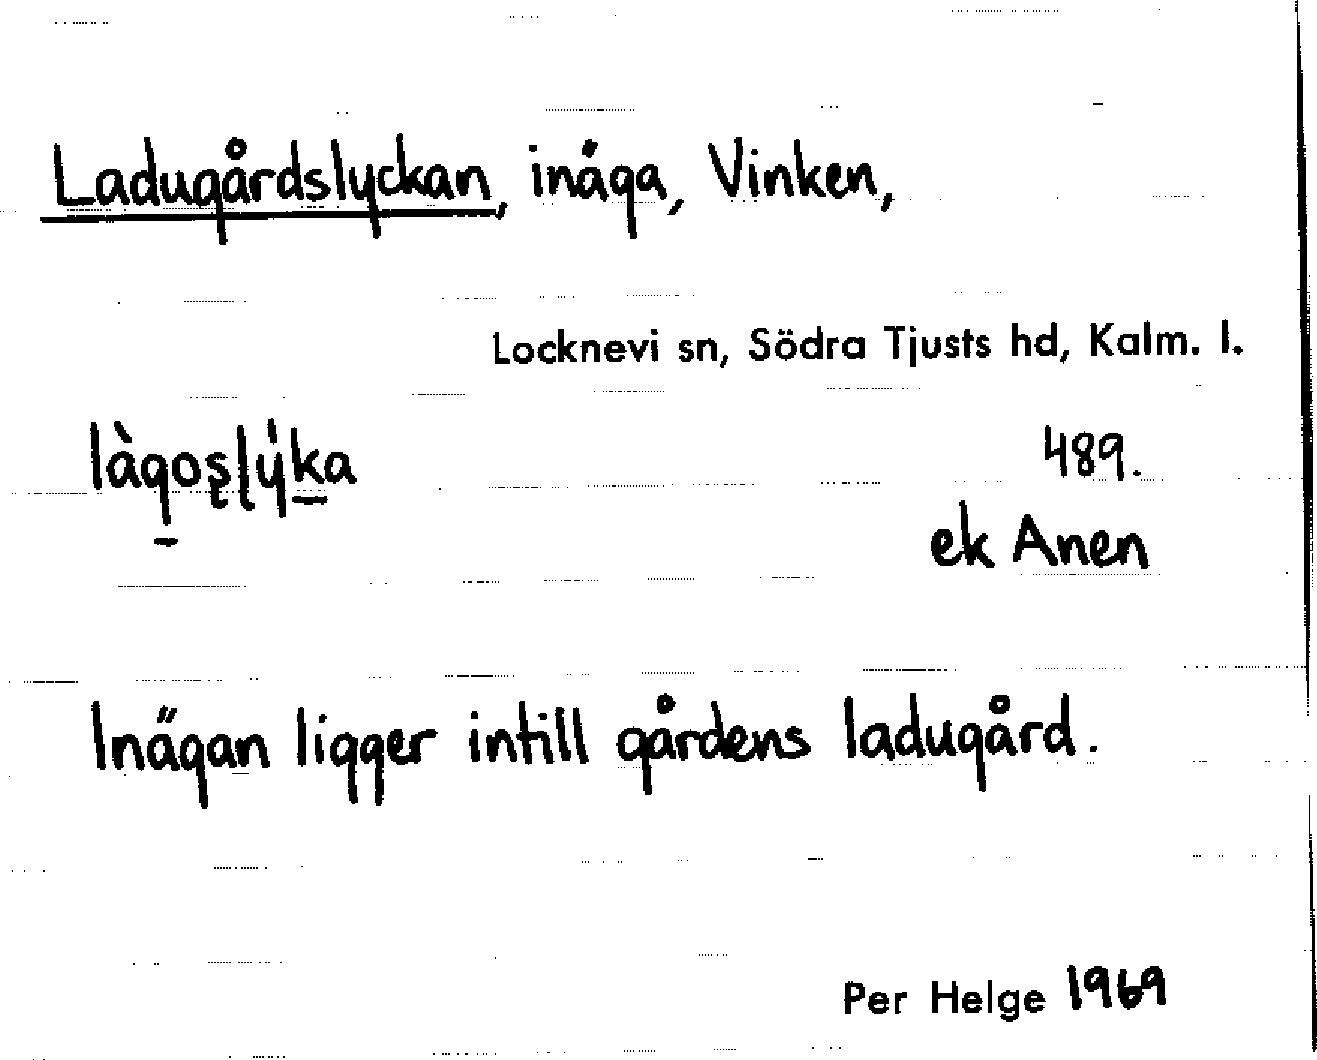 Ladugårdslyckan, inäga, Vinken,
Locknevi sn, Södra Tjusts hd, Kalm. l.
489.
ek Anen
Inägan ligger intill gårdens ladugård.
Per Helge 1969